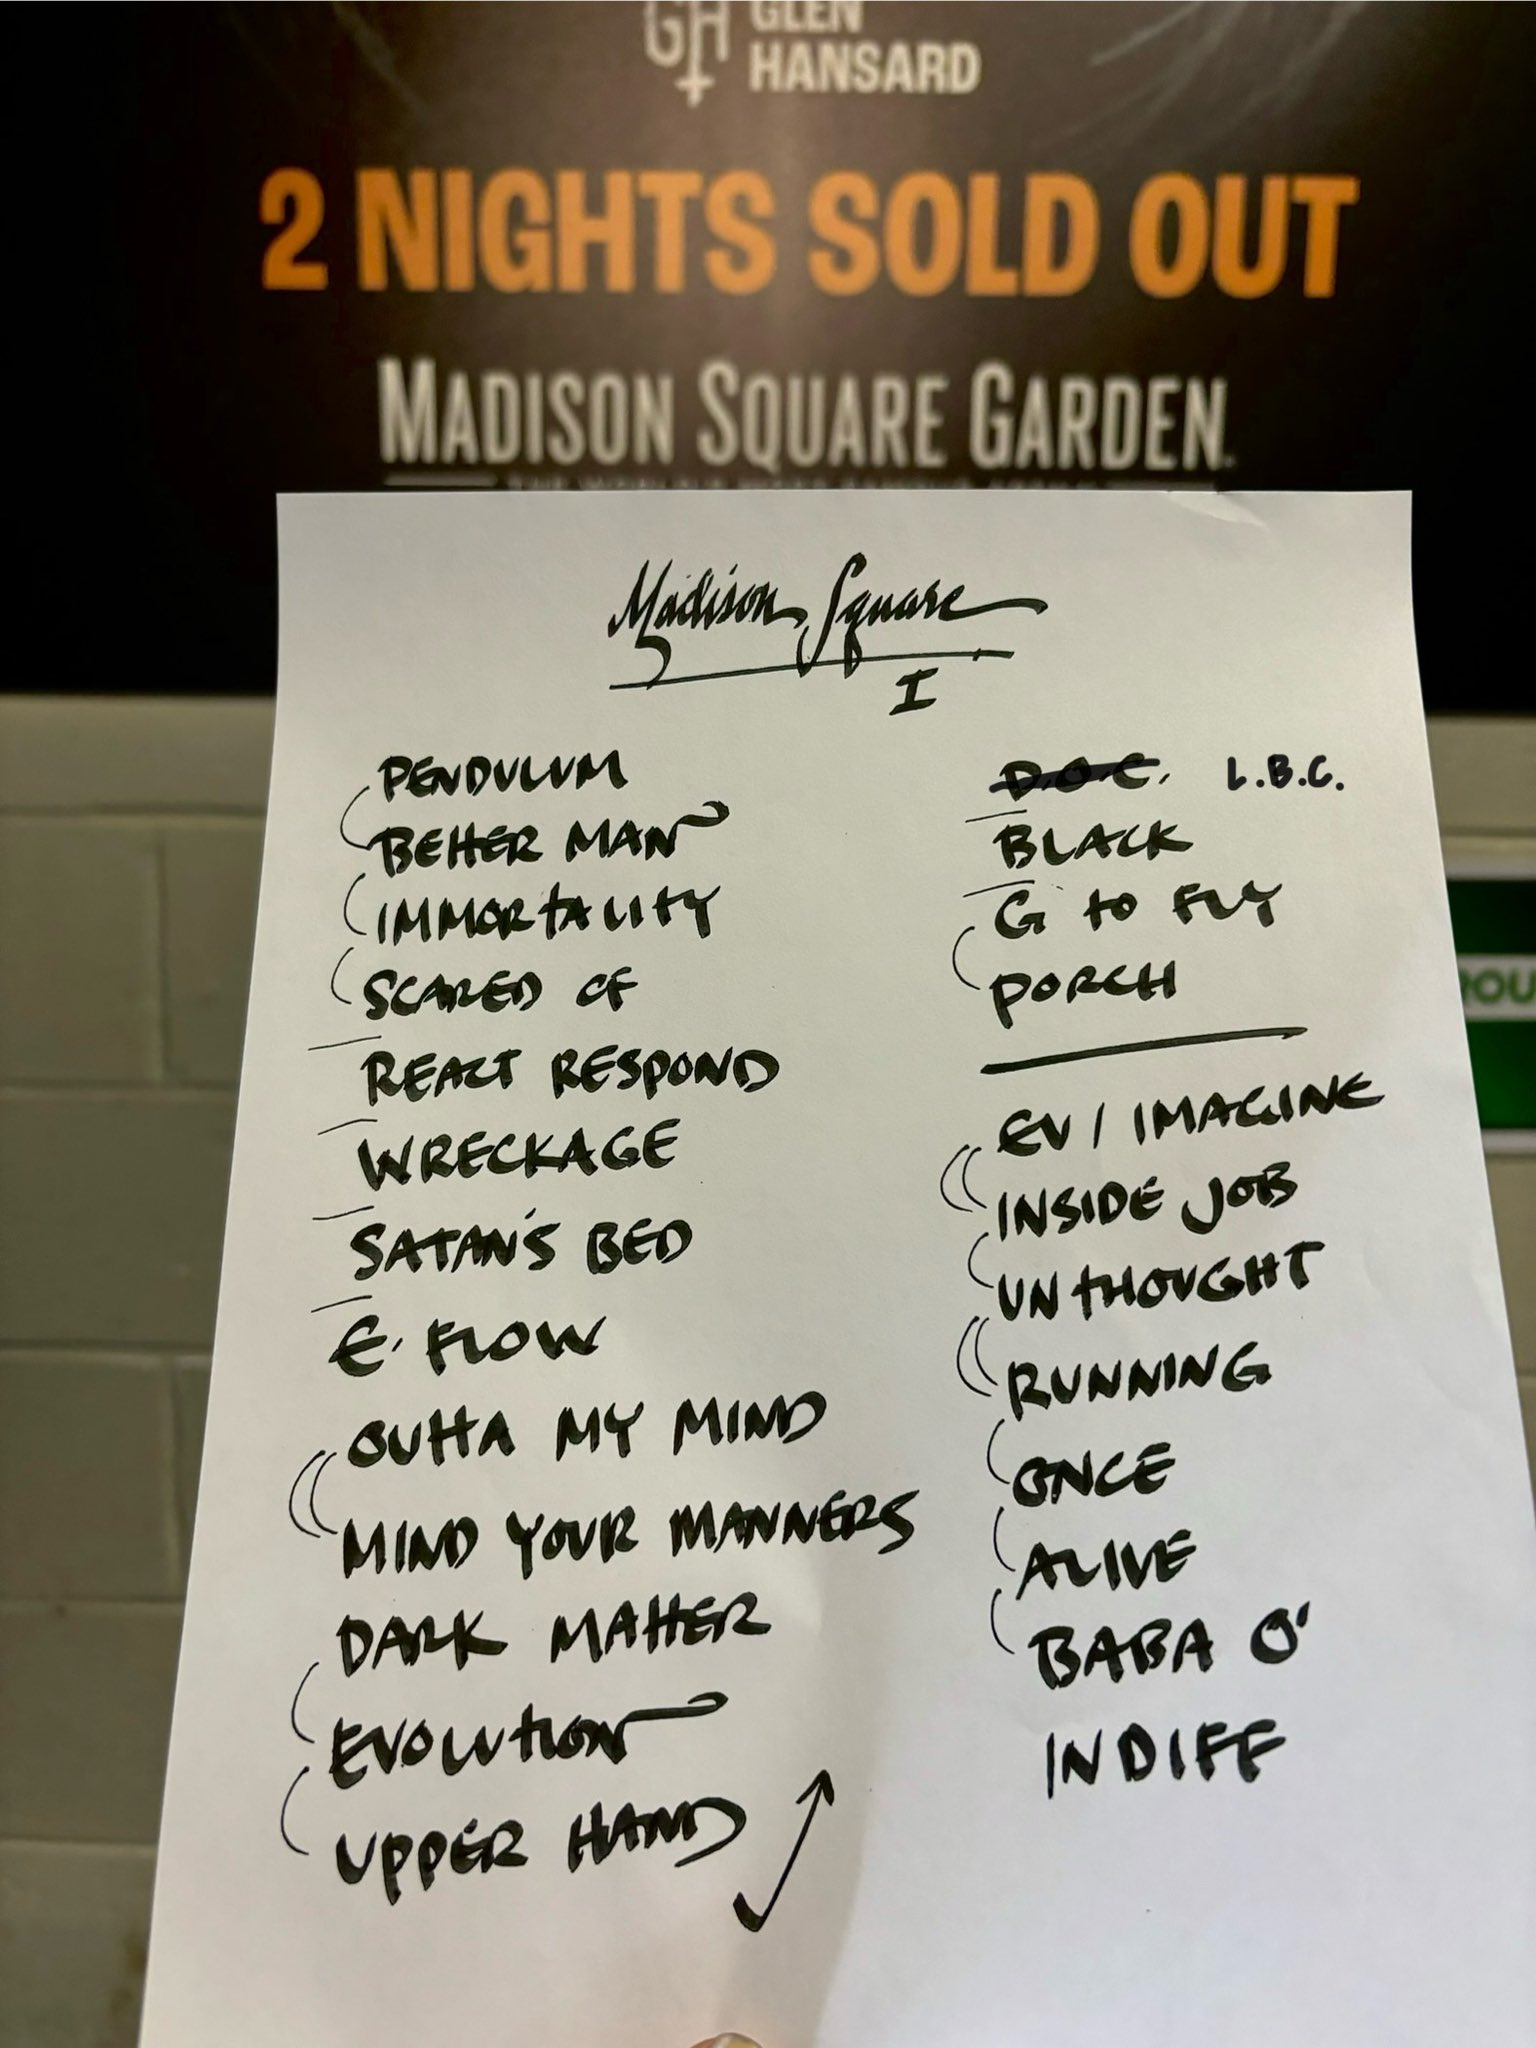 GH GLEN
HANSARD
2 NIGHTS SOLD OUT
MADISON SQUARE GARDEN
Madison Square
I
PENDULUM
BETTER MAN
IMMORTALITY
SCARED OF
REACT RESPOND
WRECKAGE
SATAN'S BED
E. FLOW
OUTTA MY MIND
MIND YOUR MANNERS
DARK MATTER
EVOLUTION
UPPER HAND
D.O.C. L.B.C.
BLACK
G TO FLY
PORCH
EV / IMAGINE
INSIDE JOB
UNTHOUGHT
RUNNING
ONCE
ALIVE
BABA O'
INDIFF